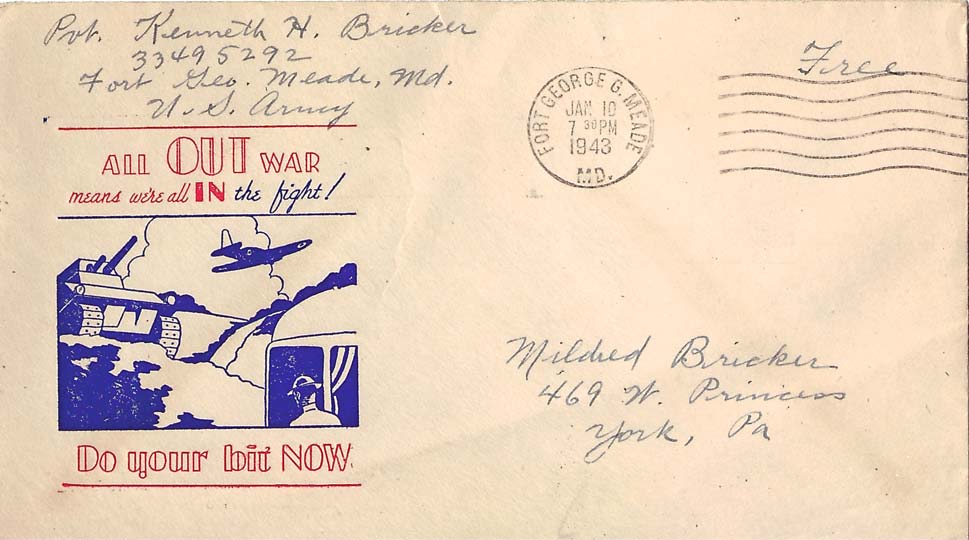 Pvt. Kenneth H. Bricker
33495292
Fort Geo. Meade, Md.
U.S. Army
Free
FORT GEORGE G. MEADE
JAN 10
7 30 PM
1943
MD.
ALL OUT WAR
means we're all IN the fight!
Do your bit NOW
Mildred Bricker
469 W. Princess
York, Pa